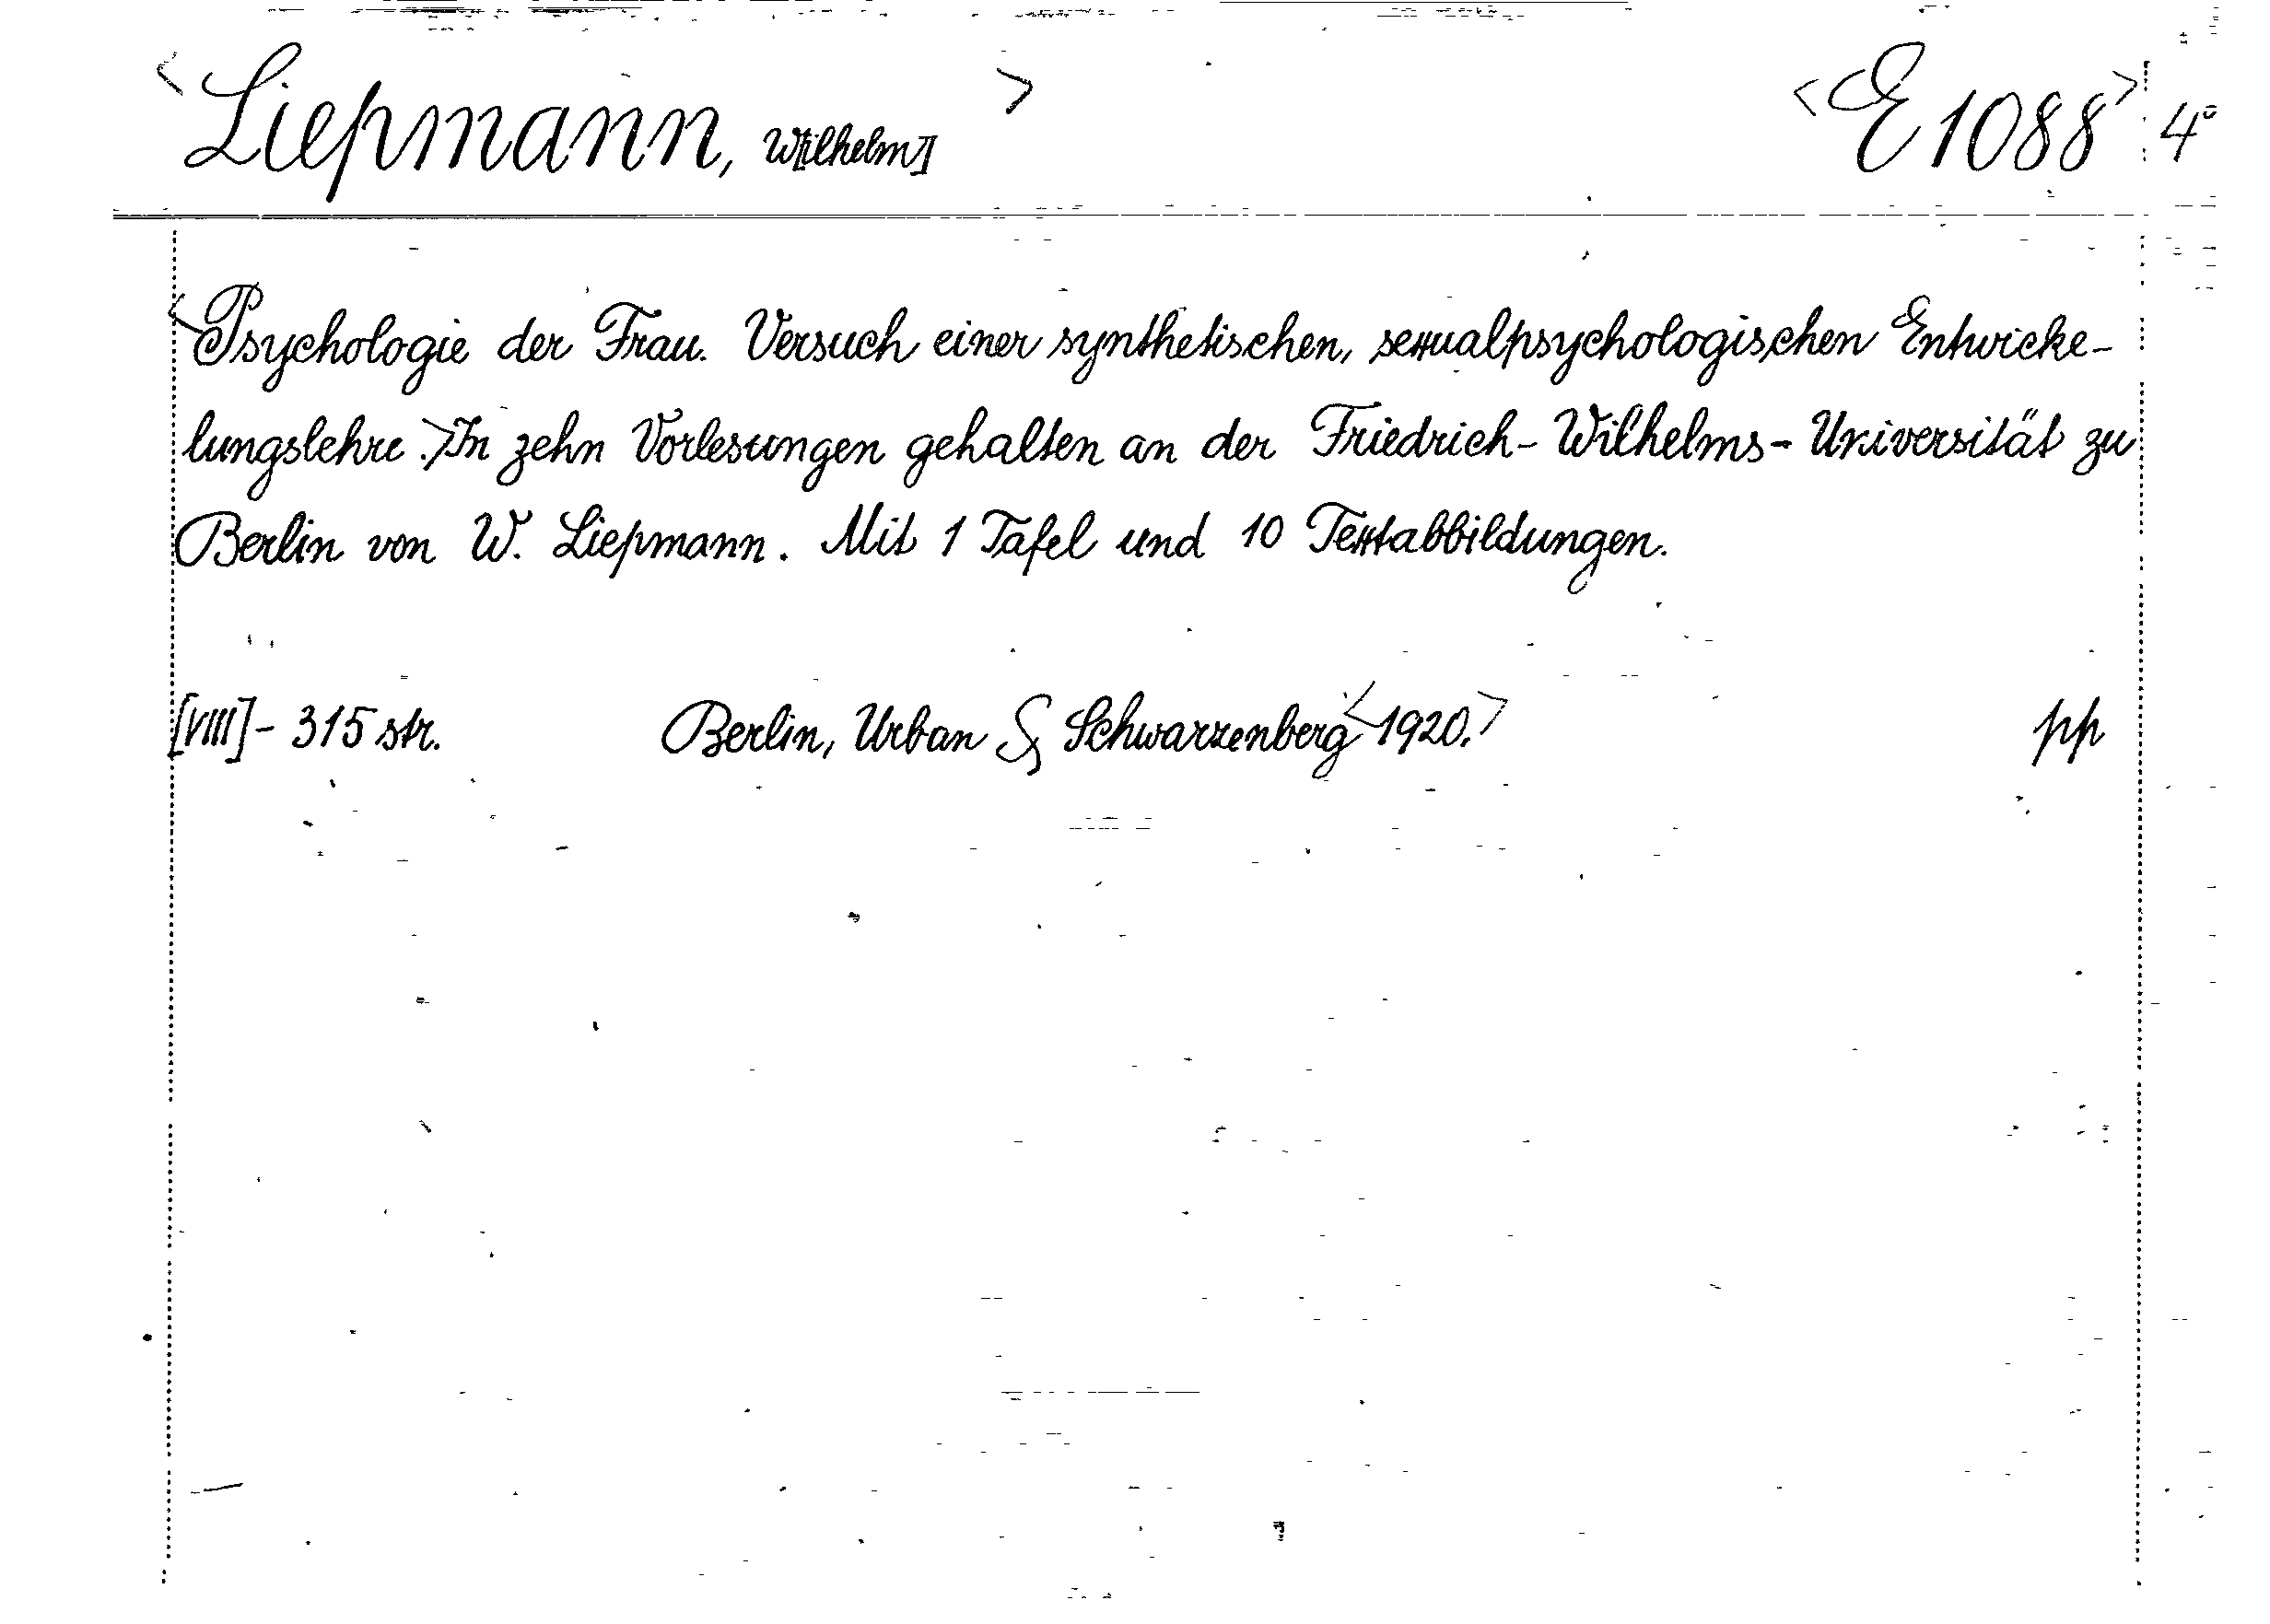 <Liepmann, W[ilhelm]> <E 1088> 4°
<Psychologie der Frau. Versuch einer synthetischen, sexualpsychologischen Entwicke-
lungslehre.> In zehn Vorlesungen gehalten an der Friedrich-Wilhelms-Universität zu
Berlin von W. Liepmann. Mit 1 Tafel und 10 Textabbildungen.
[VIII] - 315 str. Berlin, Urban & Schwarzenberg <1920.> pp